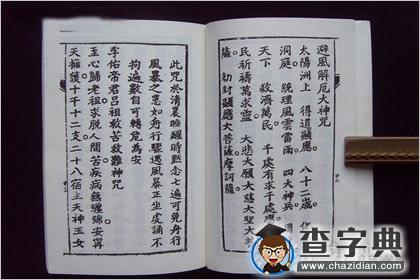 避風解厄大神咒
太陽洲上。得道顯應。八十二歲。化
洞庭。號理風雲雷雨。四大神兵。
天下。救濟萬民。千處有求千處應。
民祈禱萬求靈。大悲大願大慈大聖大
薩。勅封顯應大菩薩摩訶薩。
此咒於清晨睡醒時默念七遍可免舟行
風暴之患如舟行驟遇風暴正坐虔誦不
拘遍數自可轉危為安
孚佑帝君呂祖救苦救難神咒
至心歸老祖求脫人間苦疾病無纏綿安寧
天擁護十千十二支二十八宿主天神玉女
查字典
www.chazidian.com